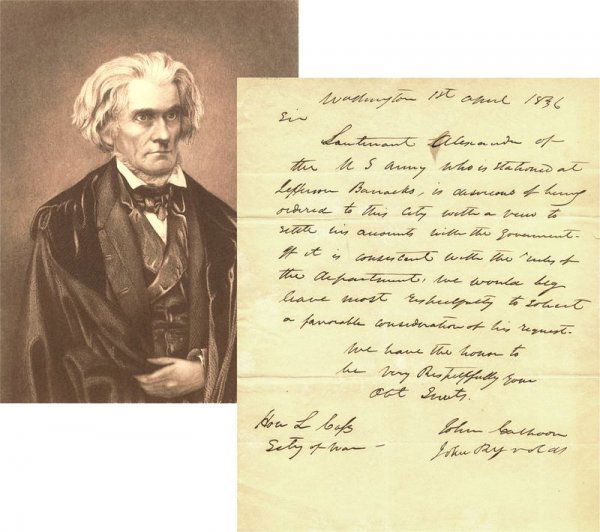 Washington 1st April 1836
Sir
Lieutenant Alexander of
the U S Army who is stationed at
Jefferson Barracks, is desirous of being
ordered to this City with a view to
settle his accounts with the Government.
If it is consistent with the rules of
the department, we would beg
leave most respectfully to solicit
a favorable consideration of his request.
We have the honor to
be very Respectfully your
Obt Servts.
Hon L Cass
Secty of War
John Calhoun
John Reynolds